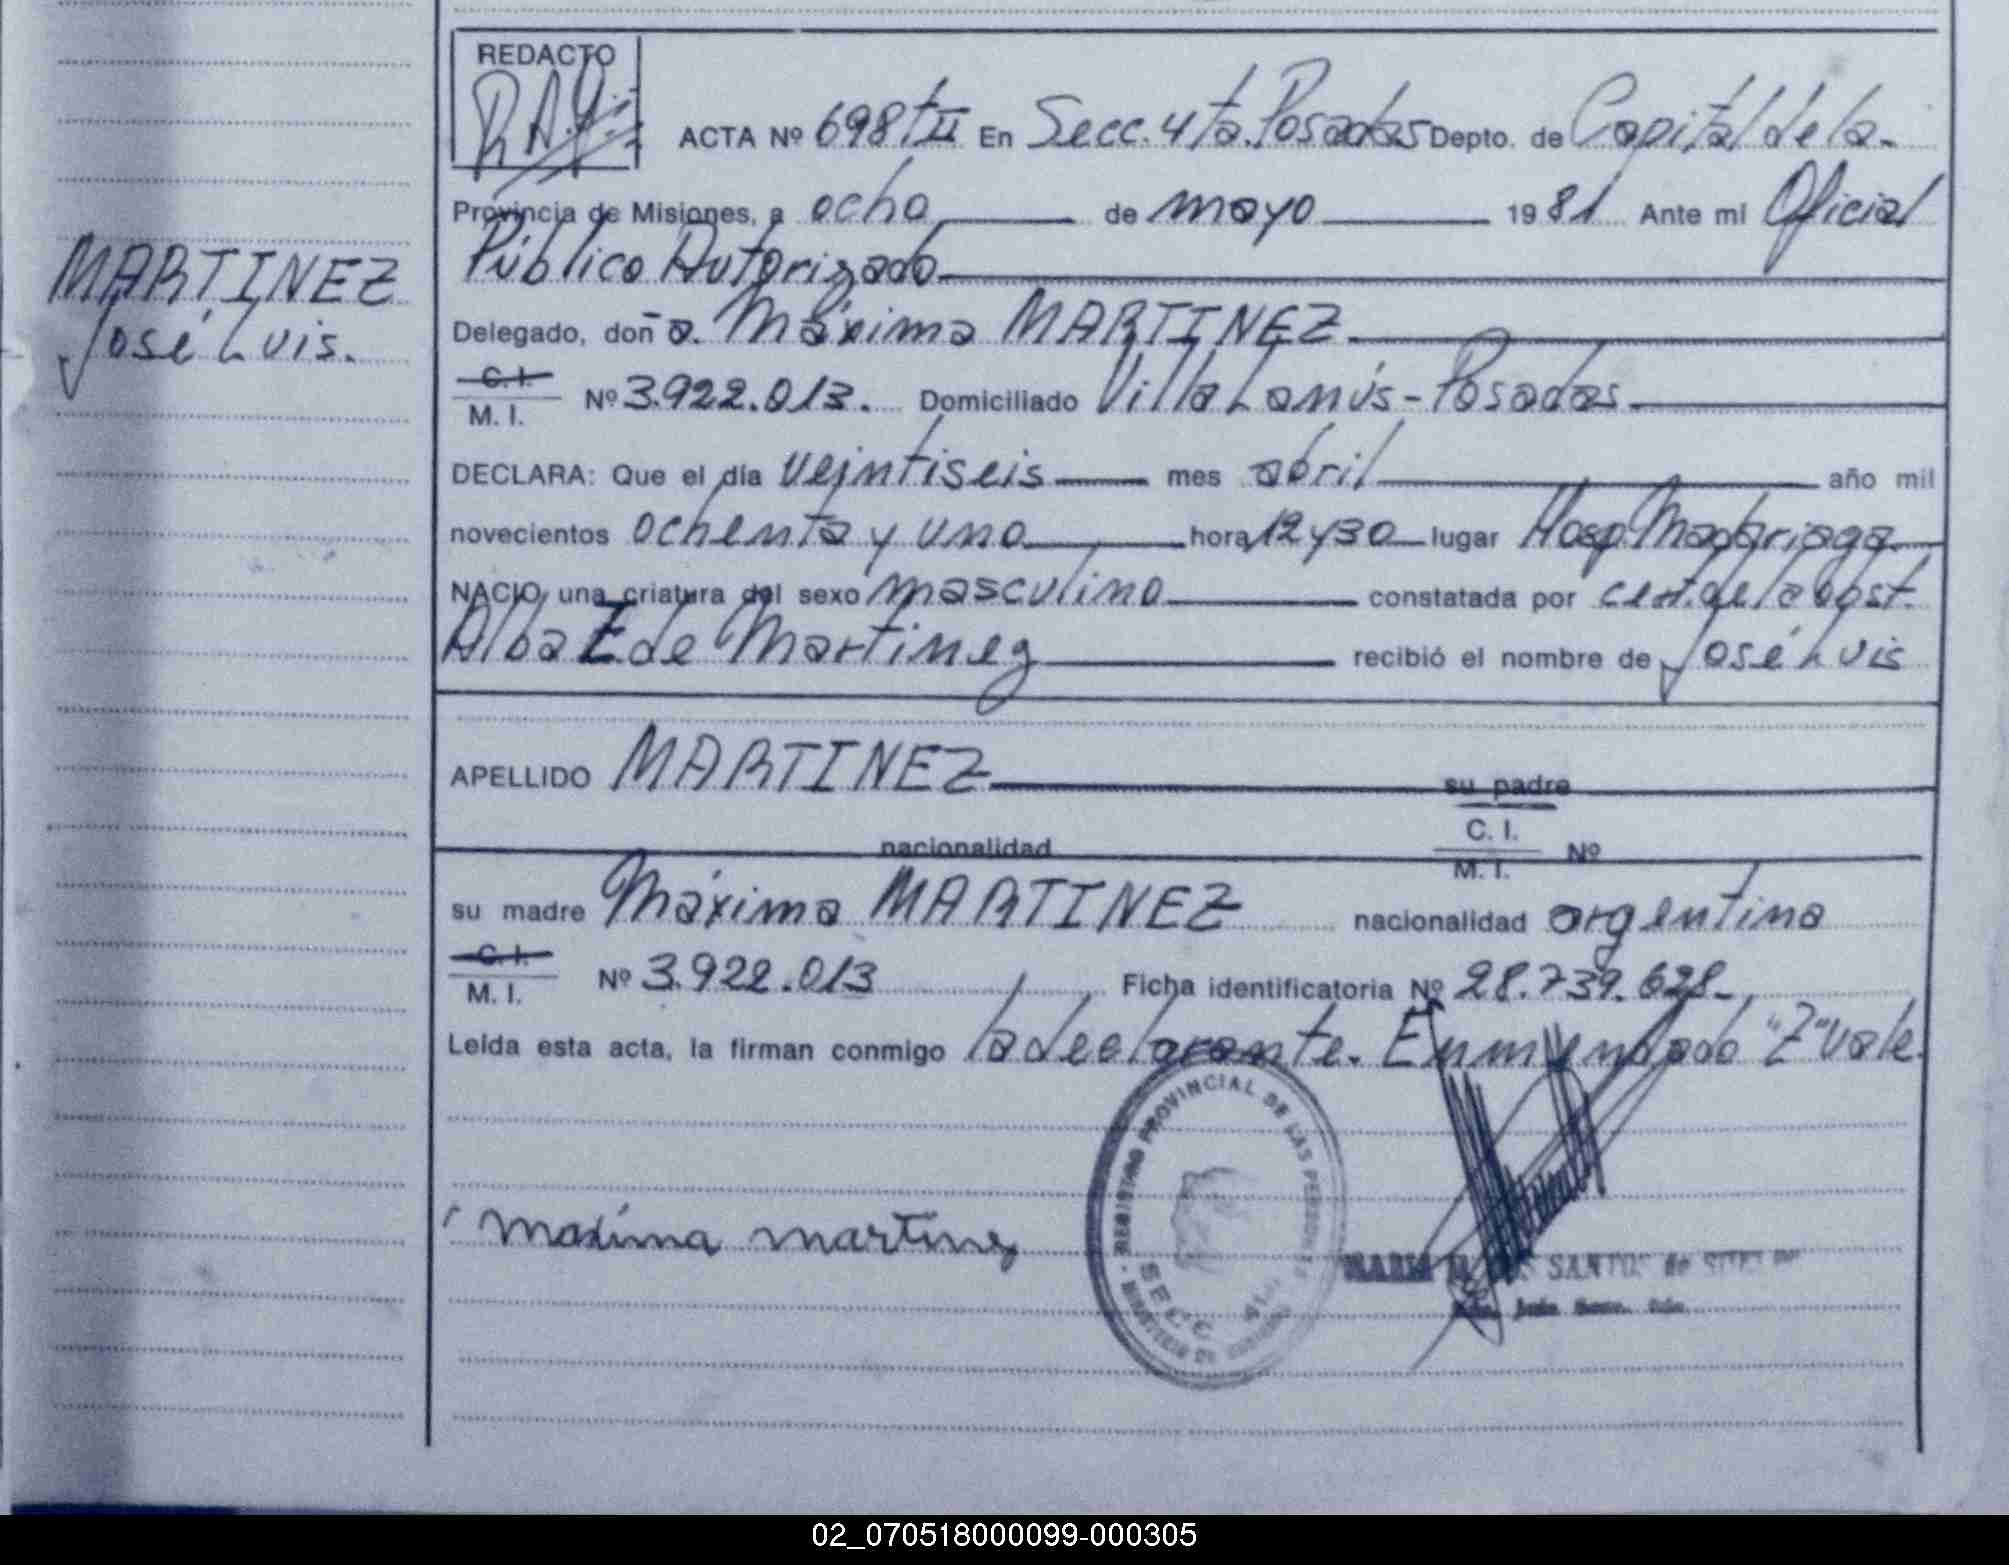 REDACTO
ACTA Nº 698 tII En Secc. 4ta. Posadas Depto. de Capital de la
Provincia de Misiones, a ocho de mayo 1981 Ante mi Oficial
Público Autorizado
MARTINEZ
José Luis.
Delegado, doña. Máxima MARTINEZ.
C. I.
M. I. Nº 3.922.013. Domiciliado Villa Lanús - Posadas.
DECLARA: Que el día veintiseis mes abril año mil
novecientos ochenta y uno hora 12 y 30 lugar Hosp Madariaga
NACIO una criatura del sexo masculino constatada por cert. de la obst.
Alba Z de Martinez recibió el nombre de José Luis
APELLIDO MARTINEZ su padre
nacionalidad C. I.
M. I. Nº
su madre Máxima MARTINEZ nacionalidad argentina
C. I.
M. I. Nº 3.922.013 Ficha identificatoria Nº 28.739.628.
Leída esta acta, la firman conmigo la declarante. Enmendado "Z" vale.
REGISTRO PROVINCIAL DE LAS PERSONAS
SECC.
maxima martinez
MARIA SANTOS de
02_070518000099-000305